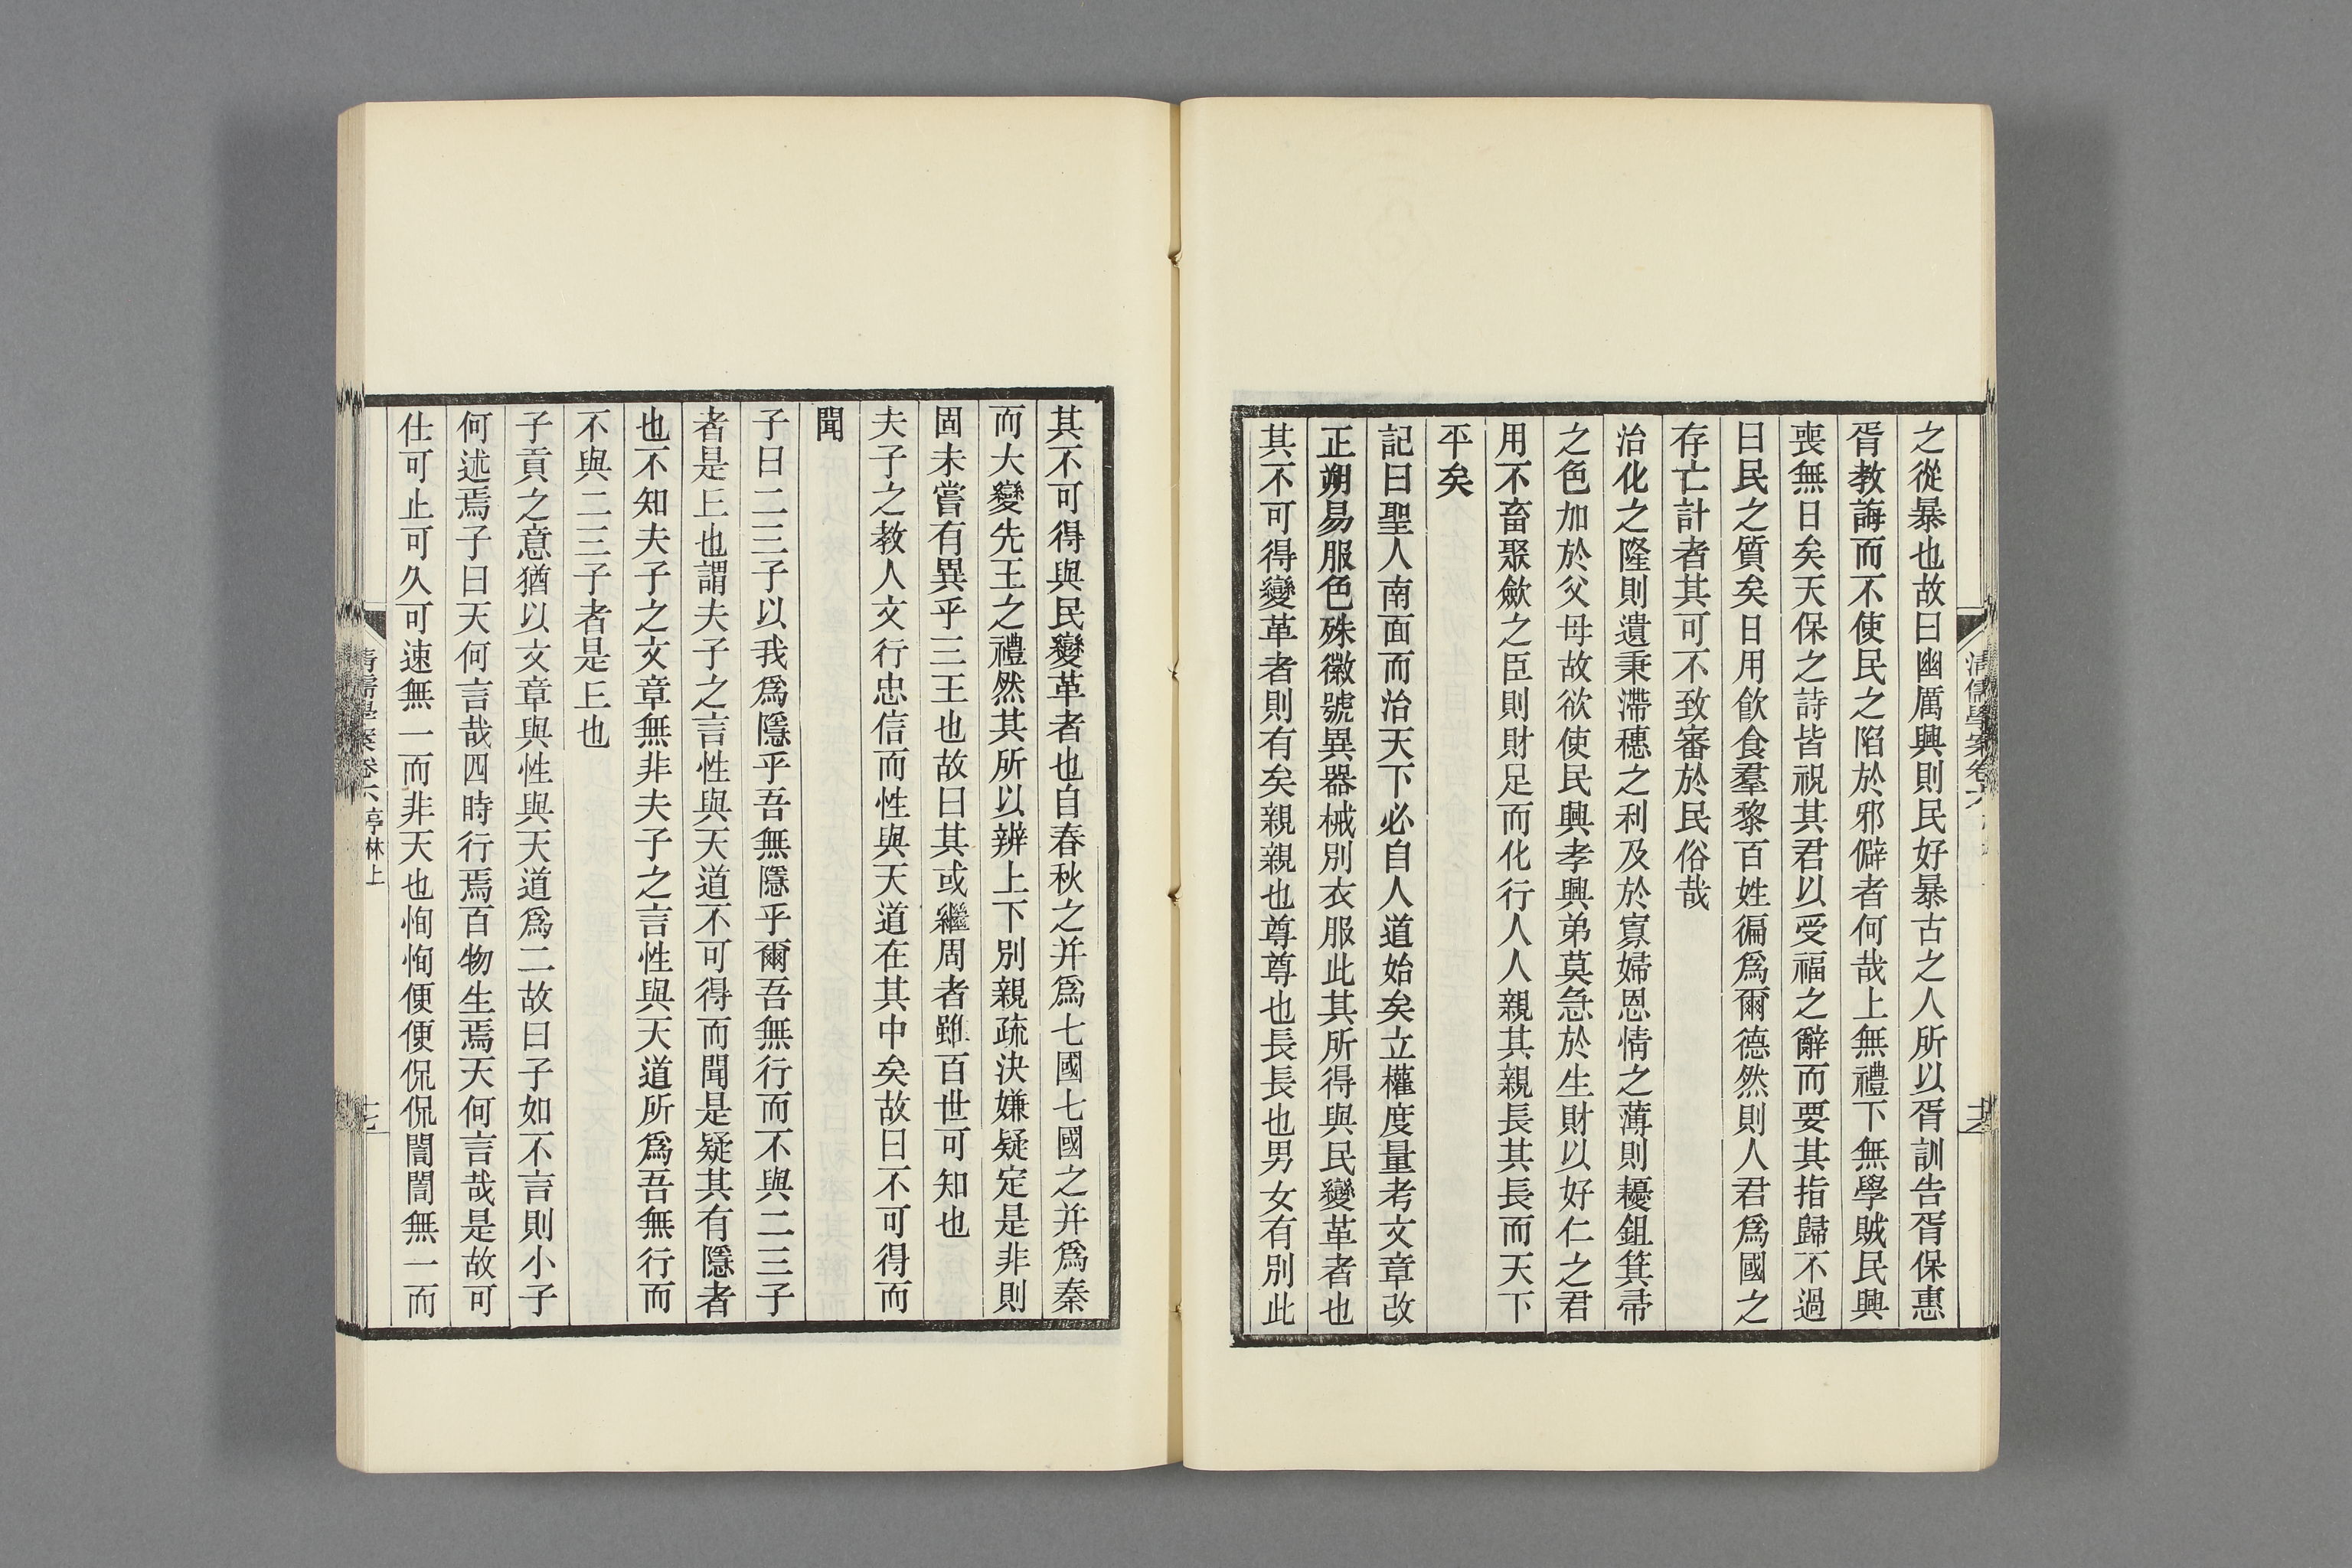 之從暴也故曰幽厲興則民好暴古之人所以胥訓告胥保惠
胥教誨而不使民之陷於邪僻者何哉上無禮下無學賊民興
喪無日矣天保之詩皆祝其君以受福之辭而要其指歸不過
曰民之質矣日用飲食羣黎百姓徧爲爾德然則人君爲國之
存亡計者其可不致審於民俗哉
治化之隆則遺秉滯穗之利及於寡婦恩情之薄則耰鉏箕帚
之色加於父母故欲使民興孝興弟莫急於生財以好仁之君
用不畜聚斂之臣則財足而化行人人親其親長其長而天下
平矣
記曰聖人南面而治天下必自人道始矣立權度量考文章改
正朔易服色殊徽號異器械別衣服此其所得與民變革者也
其不可得變革者則有矣親親也尊尊也長長也男女有別此
清儒學案卷六
其不可得與民變革者也自春秋之并爲七國七國之并爲秦
而大變先王之禮然其所以辨上下別親疏決嫌疑定是非則
固未嘗有異乎三王也故曰其或繼周者雖百世可知也
夫子之教人文行忠信而性與天道在其中矣故曰不可得而
聞
子曰二三子以我爲隱乎吾無隱乎爾吾無行而不與二三子
者是丘也謂夫子之言性與天道不可得而聞是疑其有隱者
也不知夫子之文章無非夫子之言性與天道所爲吾無行而
不與二三子者是丘也
子貢之意猶以文章與性與天道爲二故曰子如不言則小子
何述焉子曰天何言哉四時行焉百物生焉天何言哉是故可
仕可止可久可速無一而非天也恂恂便便侃侃誾誾無一而
清儒學案卷六 亭林上
十七